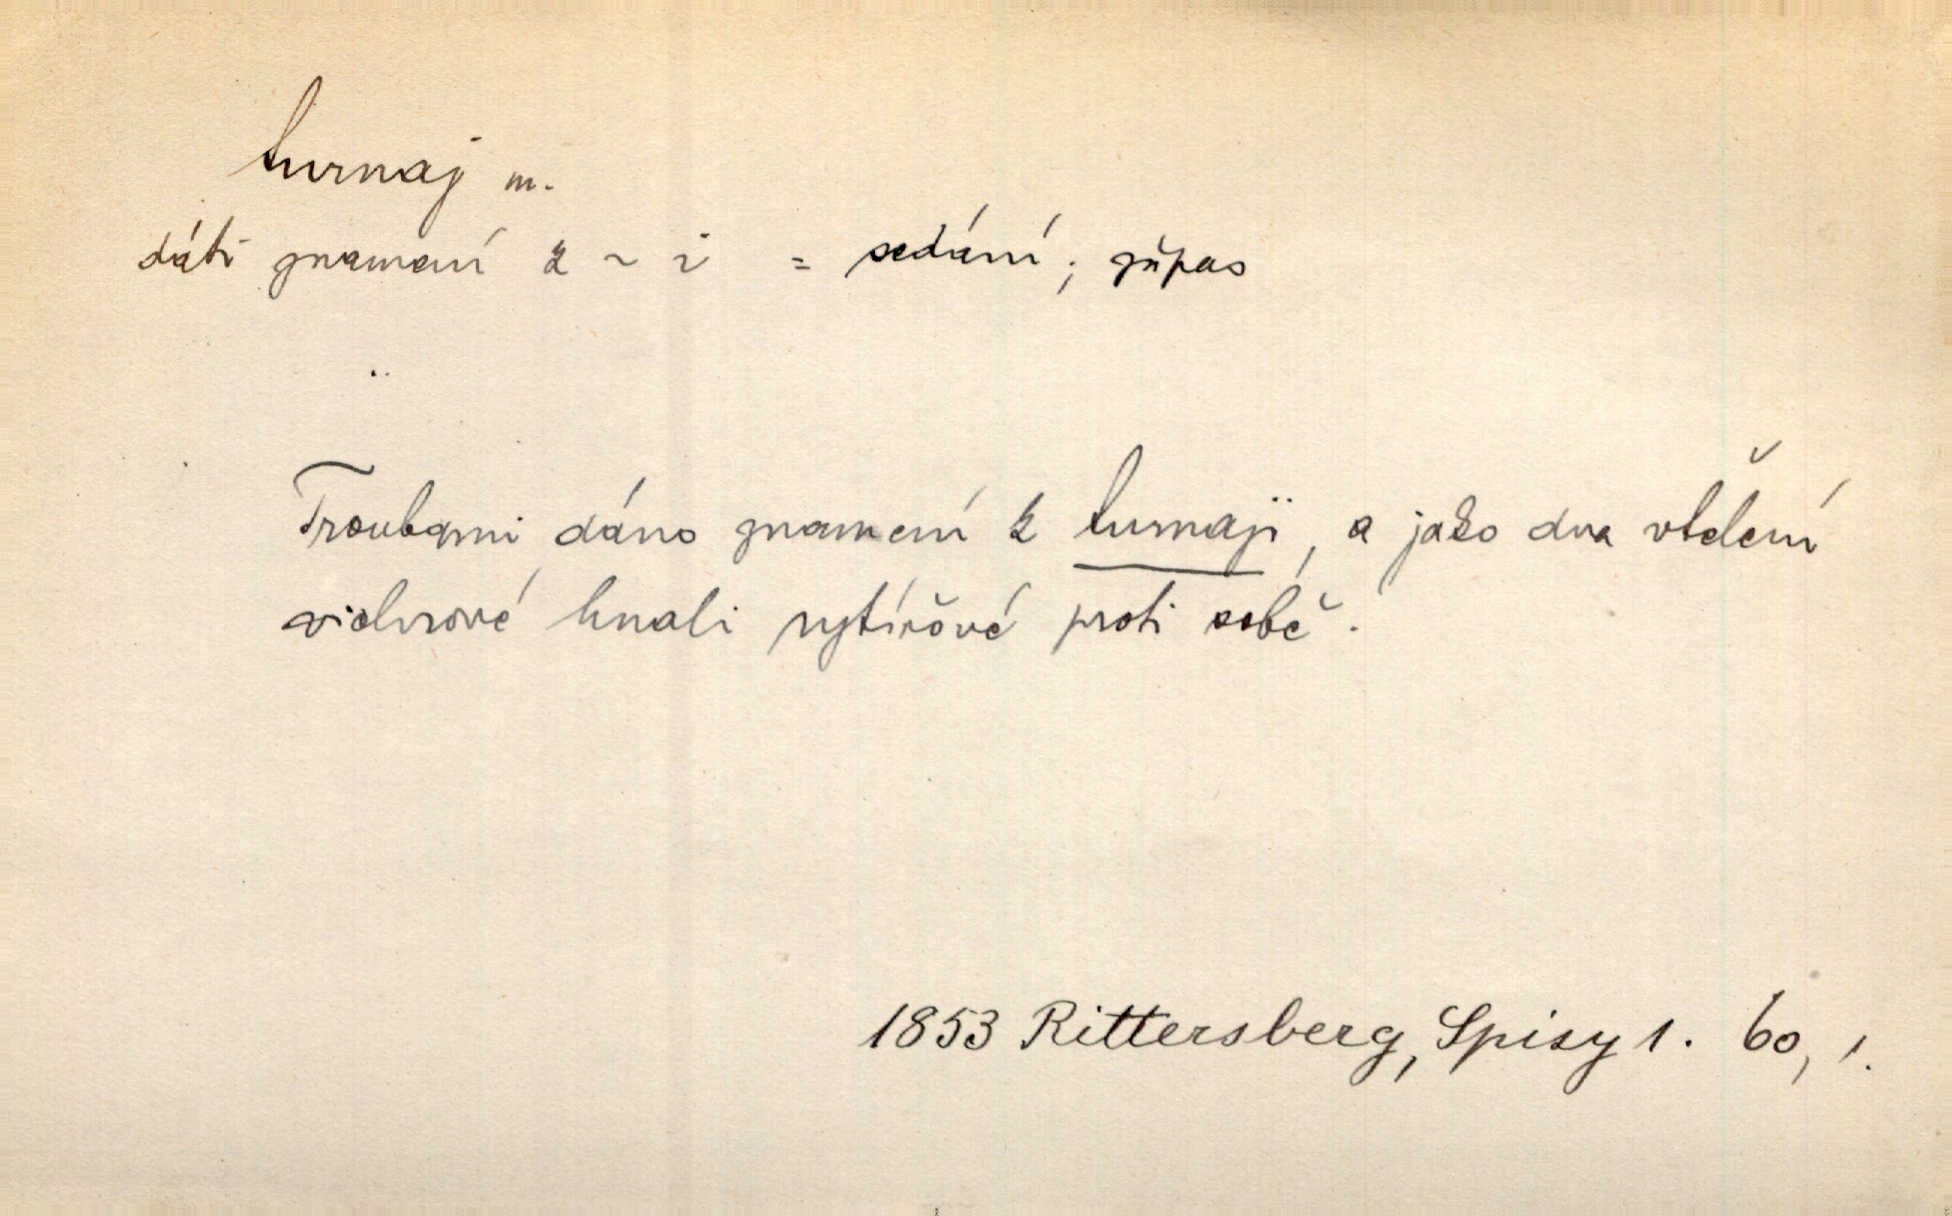 turnaj m.
dáti znamení k ~ i = sedání; zápas
Troubami dáno znamení k turnaji, a jako dva vtělení
vichrové hnali rytířové proti sobě.
1853 Rittersberg, Spisy 1. 60, 1.